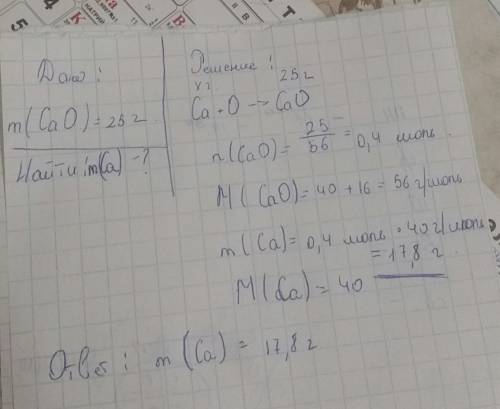 Дано:
m(CaO)=25г
Найти: m(Ca)-?
Решение:
х г 25г
Ca+O→CaO
n(CaO)= 25/56 = 0,4 моль.
M(CaO)=40+16=56г/моль
m(Ca)=0,4 моль·40г/моль
=17,8 г.
M(Ca)=40
Ответ: m(Ca)= 17,8 г